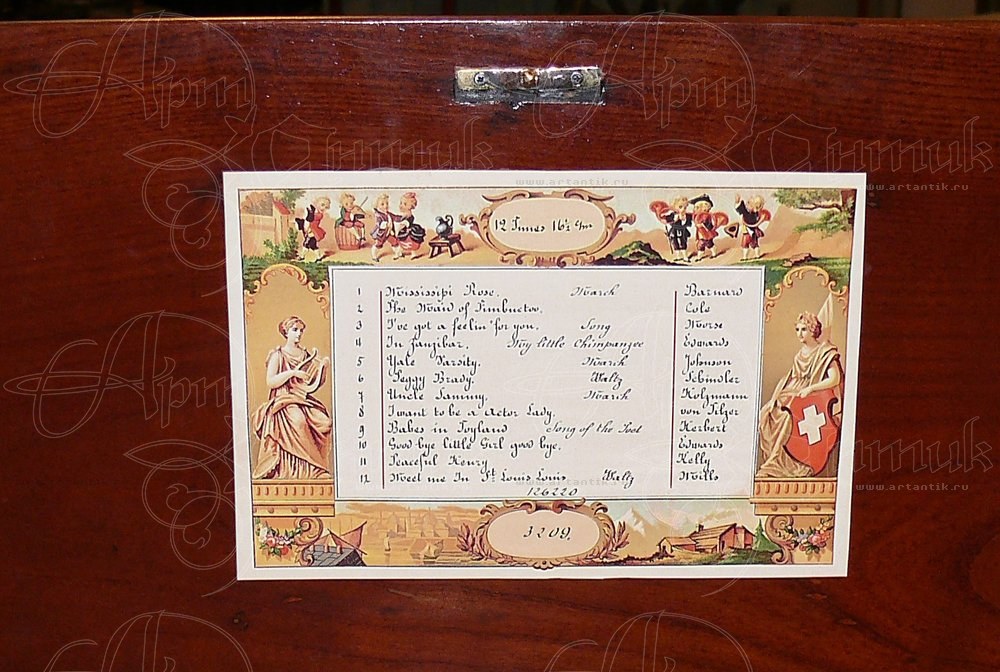 12 Tunes 16½ c/m
1 Mississipi Rose. March Barnard
2 The Maid of Timbuctoo. Cole
3 I've got a feelin' for you. Song Morse
4 In Zanzibar. My little Chimpanzee Edwards
5 Yale Varsity. March Johnson
6 Peggy Brady. Waltz Schindler
7 Uncle Sammy. March Holzmann
8 I want to be a Actor Lady. von Tilzer
9 Babes in Toyland Song of the Poet Herbert
10 Good-bye little Girl good bye. Edwards
11 Peaceful Henry Kelly
12 Meet me In St. Louis Louis Waltz Mills
126220
3209.
Арт
Антик
www.artantik.ru